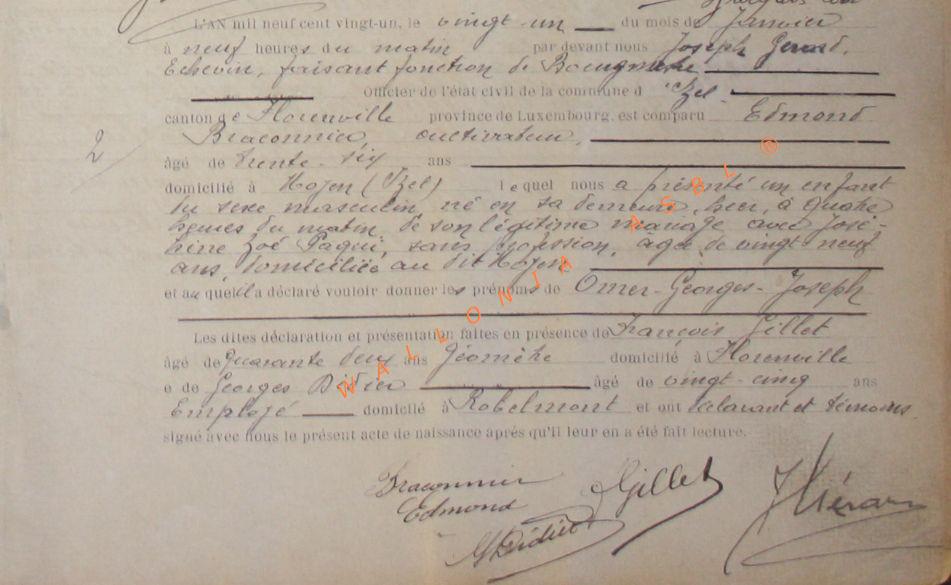 L'AN mil neuf cent vingt-un, le vingt un du mois de Janvier
à neuf heures du matin par devant nous Joseph Gérard,
Echevin, faisant fonction de Bourgmestre
Officier de l'état civil de la commune d'Izel
canton de Florenville province de Luxembourg, est comparu Edmond
Braconnier, cultivateur,
2
âgé de trente-six ans
domicilié à Moyen (Izel) lequel nous a présenté un enfant
du sexe masculin, né en sa demeure, hier, à quatre
heures du matin, de son légitime mariage avec José-
phine Zoé Paqui, sans profession, âgée de vingt neuf
ans, domiciliée au dit Moyen
et auquel il a déclaré vouloir donner les prénoms de Omer-Georges-Joseph
Les dites déclaration et présentation faites en présence de François Gillet
âgé de Quarante deux ans Géomètre domicilié à Florenville
e de Georges Didier âgé de vingt-cinq ans
Employé domicilié à Robelmont et ont déclarant et témoins
signé avec nous le présent acte de naissance après qu'il leur en a été fait lecture.
WALLONIA ASBL ©
Braconnier
Edmond
Gillet
G Didier
J Gérard